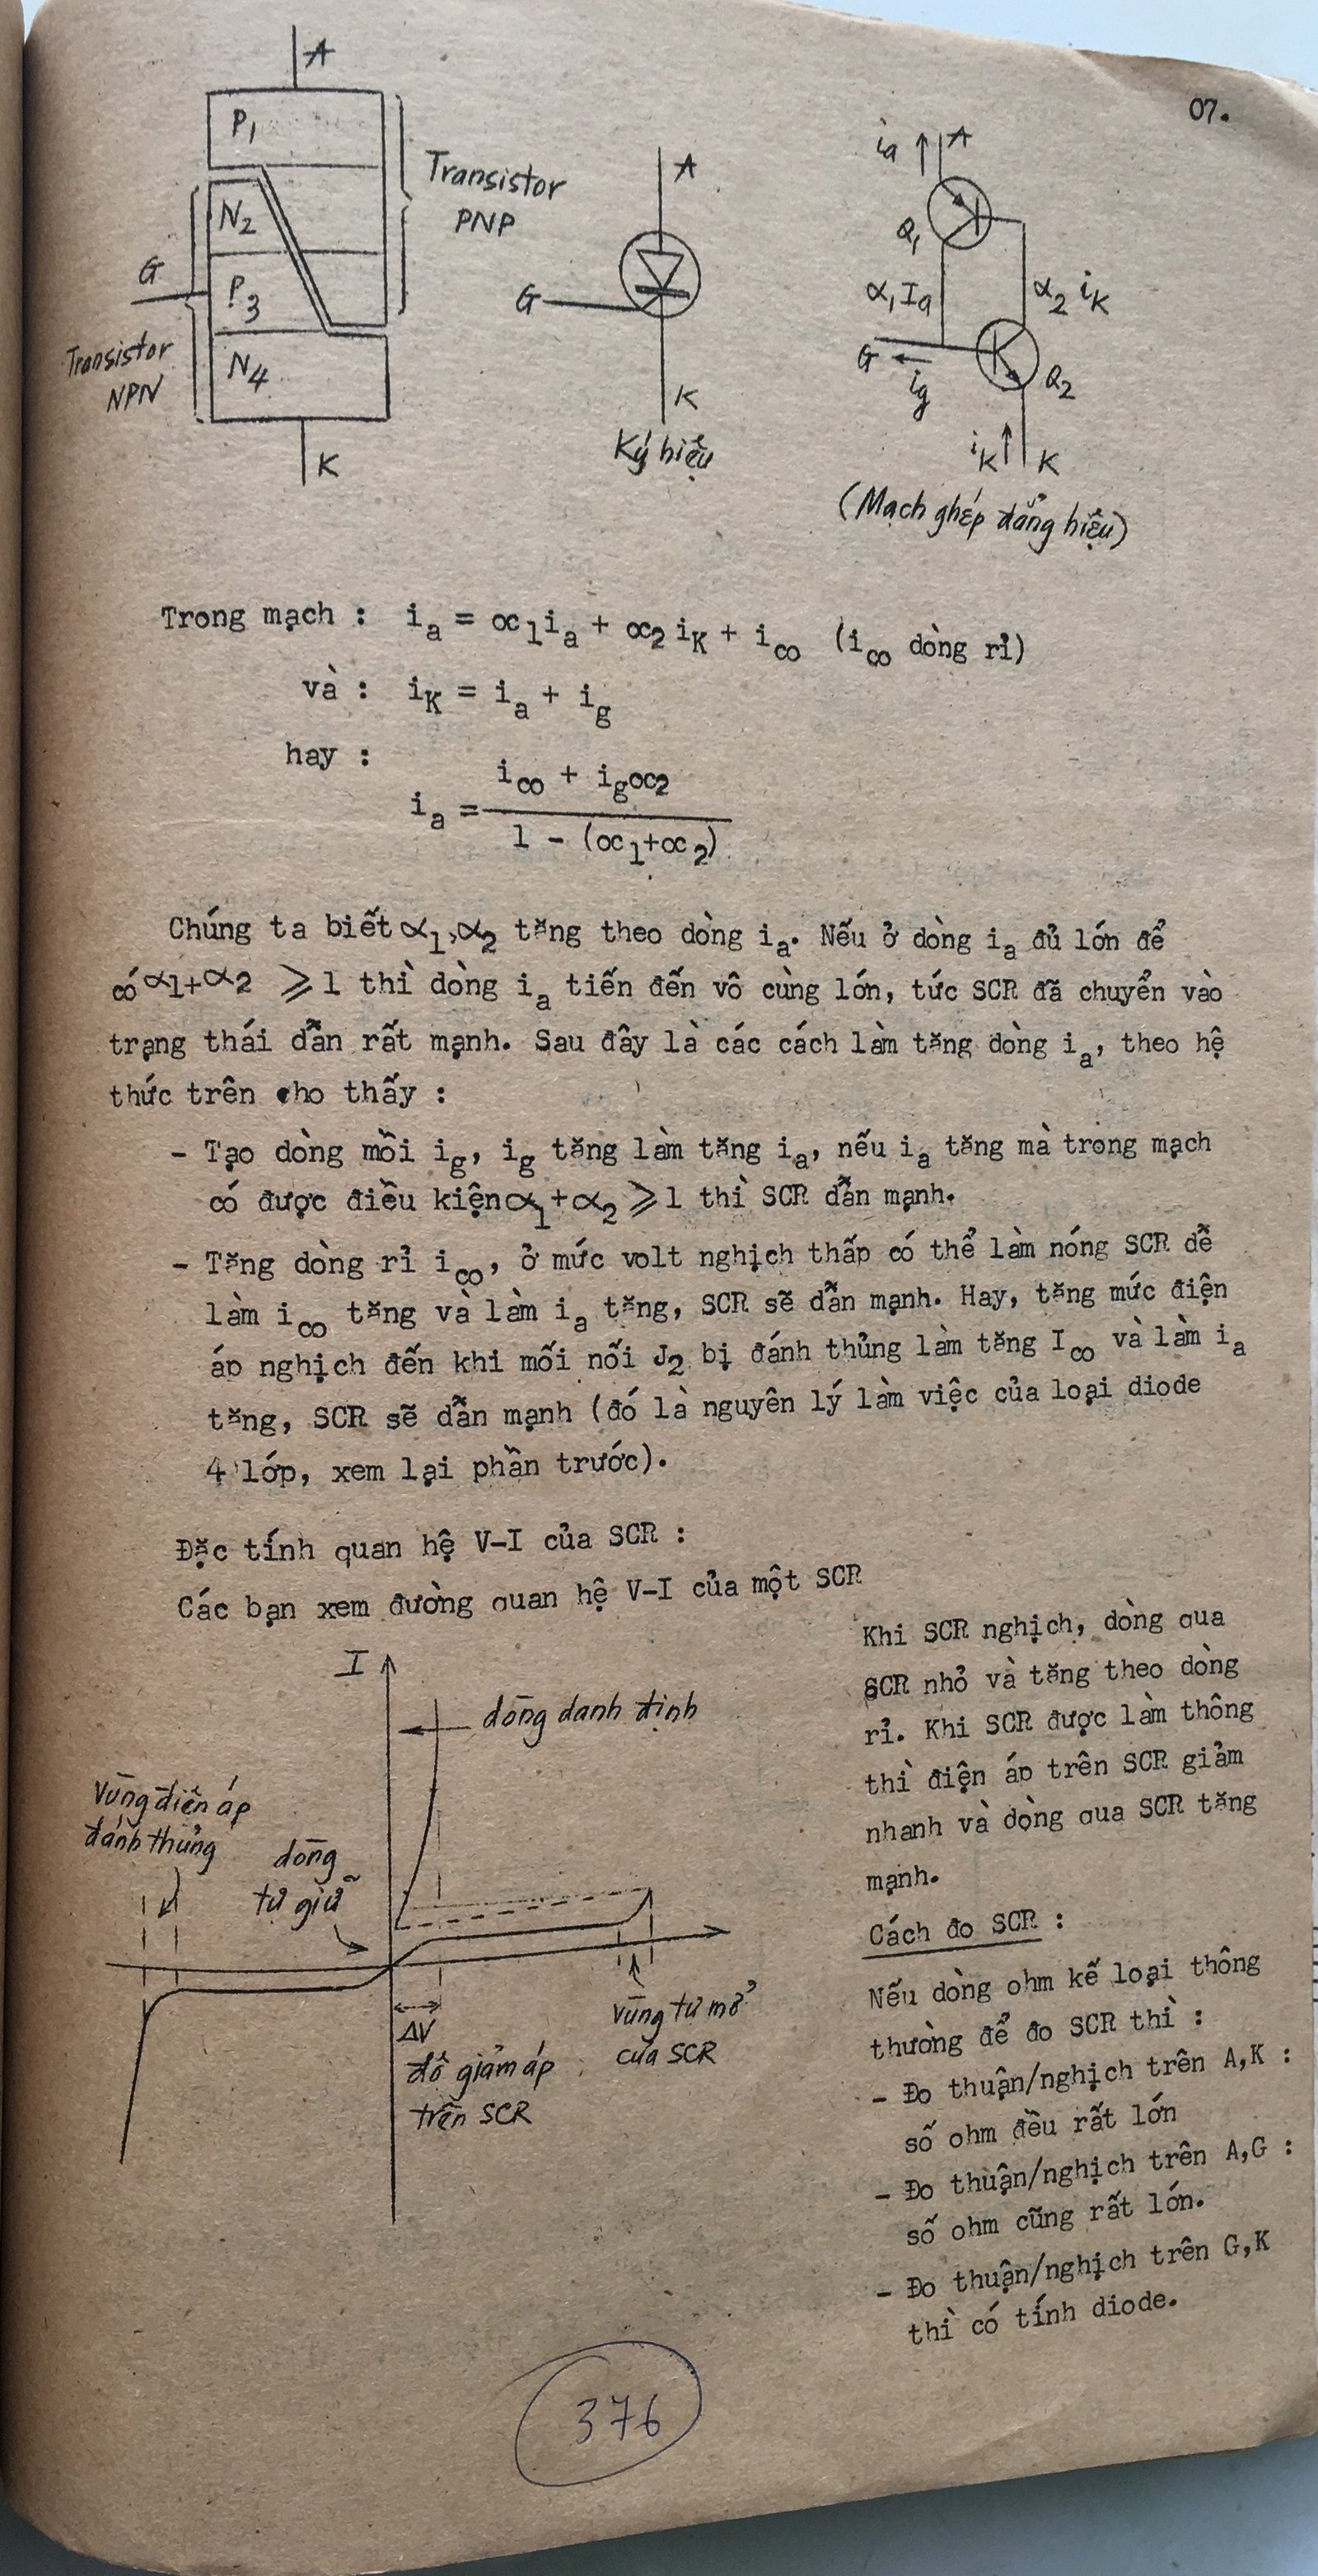 07.
A
P1
N2
P3
N4
G
K
Transistor
PNP
Transistor
NPN
A
G
K
Ký hiệu
ia
A
Q1
α1Ia
α2 iK
G
ig
Q2
iK
K
(Mạch ghép đẳng hiệu)
Trong mạch : ia = α1ia + α2 iK + ico (ico dòng rỉ)
và : iK = ia + ig
hay :
ico + igα2
ia =
1 - (α1+α2)
Chúng ta biết α1,α2 tăng theo dòng ia. Nếu ở dòng ia đủ lớn để
có α1+α2 ⩾ 1 thì dòng ia tiến đến vô cùng lớn, tức SCR đã chuyển vào
trạng thái dẫn rất mạnh. Sau đây là các cách làm tăng dòng ia, theo hệ
thức trên cho thấy :
- Tạo dòng mồi ig, ig tăng làm tăng ia, nếu ia tăng mà trong mạch
có được điều kiện α1+α2 ⩾ 1 thì SCR dẫn mạnh.
- Tăng dòng rỉ ico, ở mức volt nghịch thấp có thể làm nóng SCR dể
làm ico tăng và làm ia tăng, SCR sẽ dẫn mạnh. Hay, tăng mức điện
áp nghịch đến khi mối nối J2 bị đánh thủng làm tăng Ico và làm ia
tăng, SCR sẽ dẫn mạnh (đó là nguyên lý làm việc của loại diode
4 lớp, xem lại phần trước).
Đặc tính quan hệ V-I của SCR :
Các bạn xem đường quan hệ V-I của một SCR
I
dòng danh định
Vùng điện áp
đánh thủng
dòng
tự giữ
ΔV
độ giảm áp
trên SCR
Vùng tự mở
của SCR
Khi SCR nghịch, dòng qua
SCR nhỏ và tăng theo dòng
rỉ. Khi SCR được làm thông
thì điện áp trên SCR giảm
nhanh và dòng qua SCR tăng
mạnh.
Cách đo SCR :
Nếu dòng ohm kế loại thông
thường để đo SCR thì :
- Đo thuận/nghịch trên A,K :
số ohm đều rất lớn
- Đo thuận/nghịch trên A,G :
số ohm cũng rất lớn.
- Đo thuận/nghịch trên G,K
thì có tính diode.
376